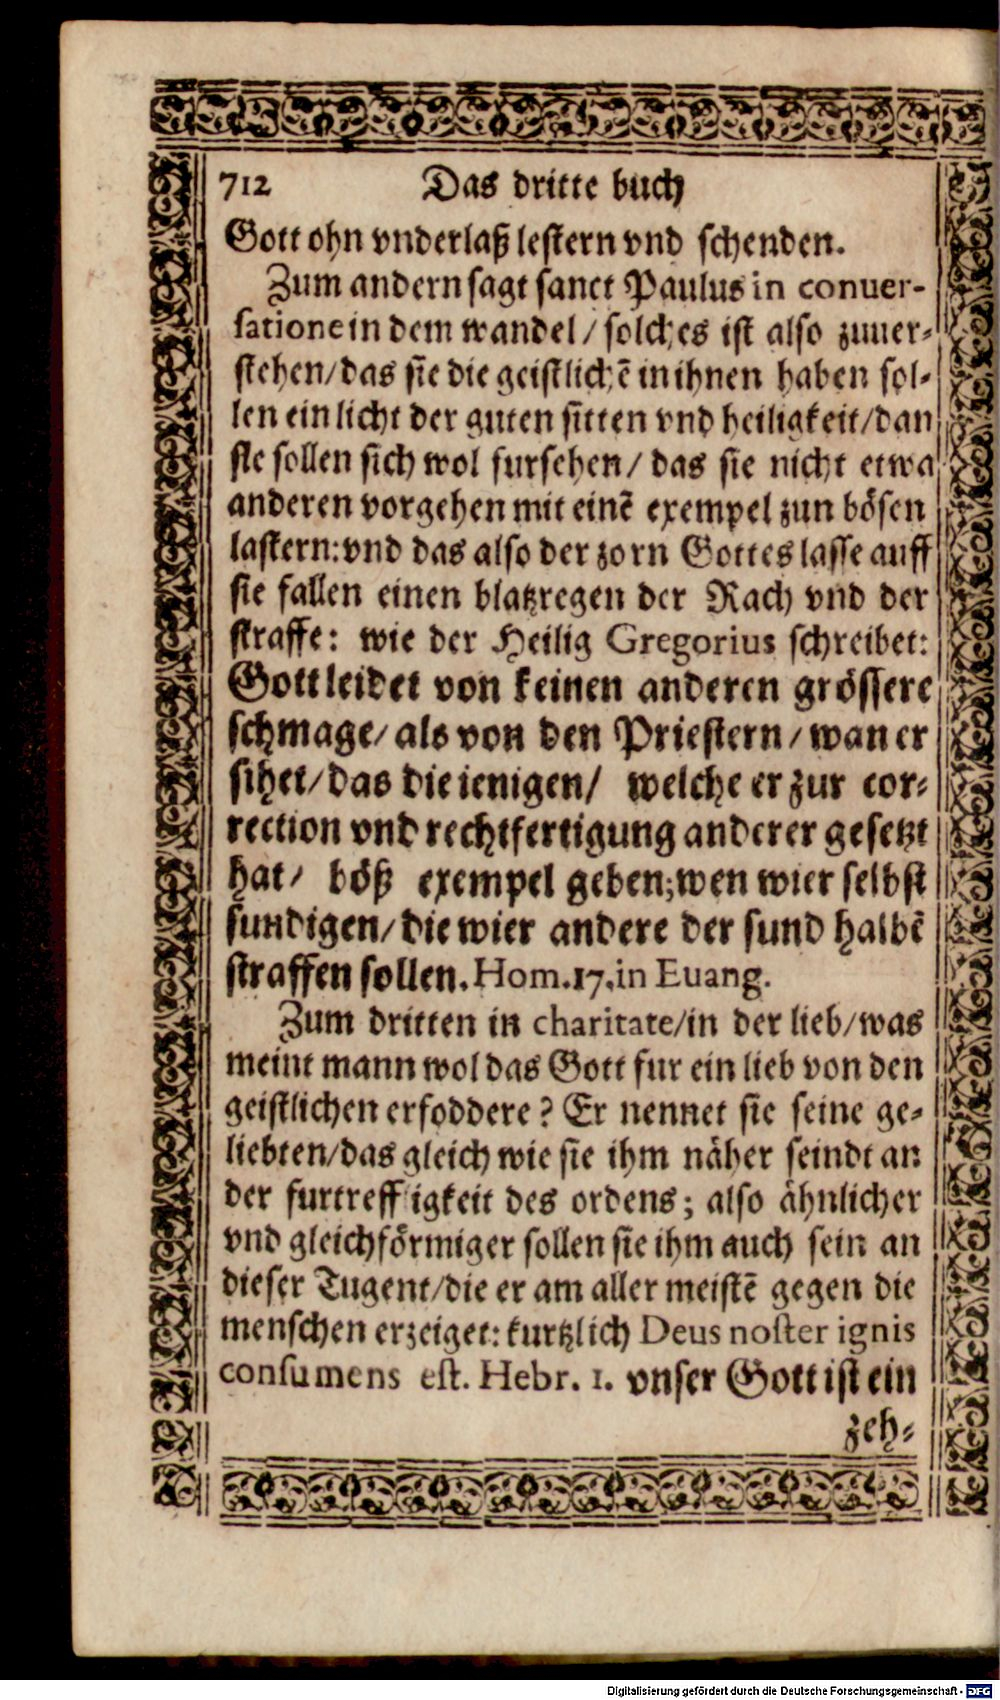 712 Das dritte buch
Gott ohn vnderlaß lestern vnd schenden.
Zum andern sagt sanct Paulus in conuer-
satione in dem wandel / solches ist also zuuer-
stehen/das sie die geistlichē in ihnen haben sol-
len ein licht der guten sitten vnd heiligkeit/dan
sie sollen sich wol fursehen / das sie nicht etwa
anderen vorgehen mit einē exempel zun bösen
lastern: vnd das also der zorn Gottes lasse auff
sie fallen einen blatzregen der Rach vnd der
straffe: wie der Heilig Gregorius schreibet:
Gott leidet von keinen anderen grössere
schmage/ als von den Priestern / wan er
sihet/das die ienigen/ welche er zur cor-
rection vnd rechtfertigung anderer gesetzt
hat/ böß exempel geben; wen wier selbst
sundigen/die wier andere der sund halbē
straffen sollen. Hom.17.in Euang.
Zum dritten in charitate/in der lieb/was
meint mann wol das Gott fur ein lieb von den
geistlichen erfoddere? Er nennet sie seine ge-
liebten/das gleich wie sie ihm näher seindt an
der furtreffligkeit des ordens; also ähnlicher
vnd gleichförmiger sollen sie ihm auch sein an
dieser Tugent/die er am aller meistē gegen die
menschen erzeiget: kurtzlich Deus noster ignis
consumens est. Hebr. 1. vnser Gott ist ein
zeh-
Digitalisierung gefördert durch die Deutsche Forschungsgemeinschaft - DFG